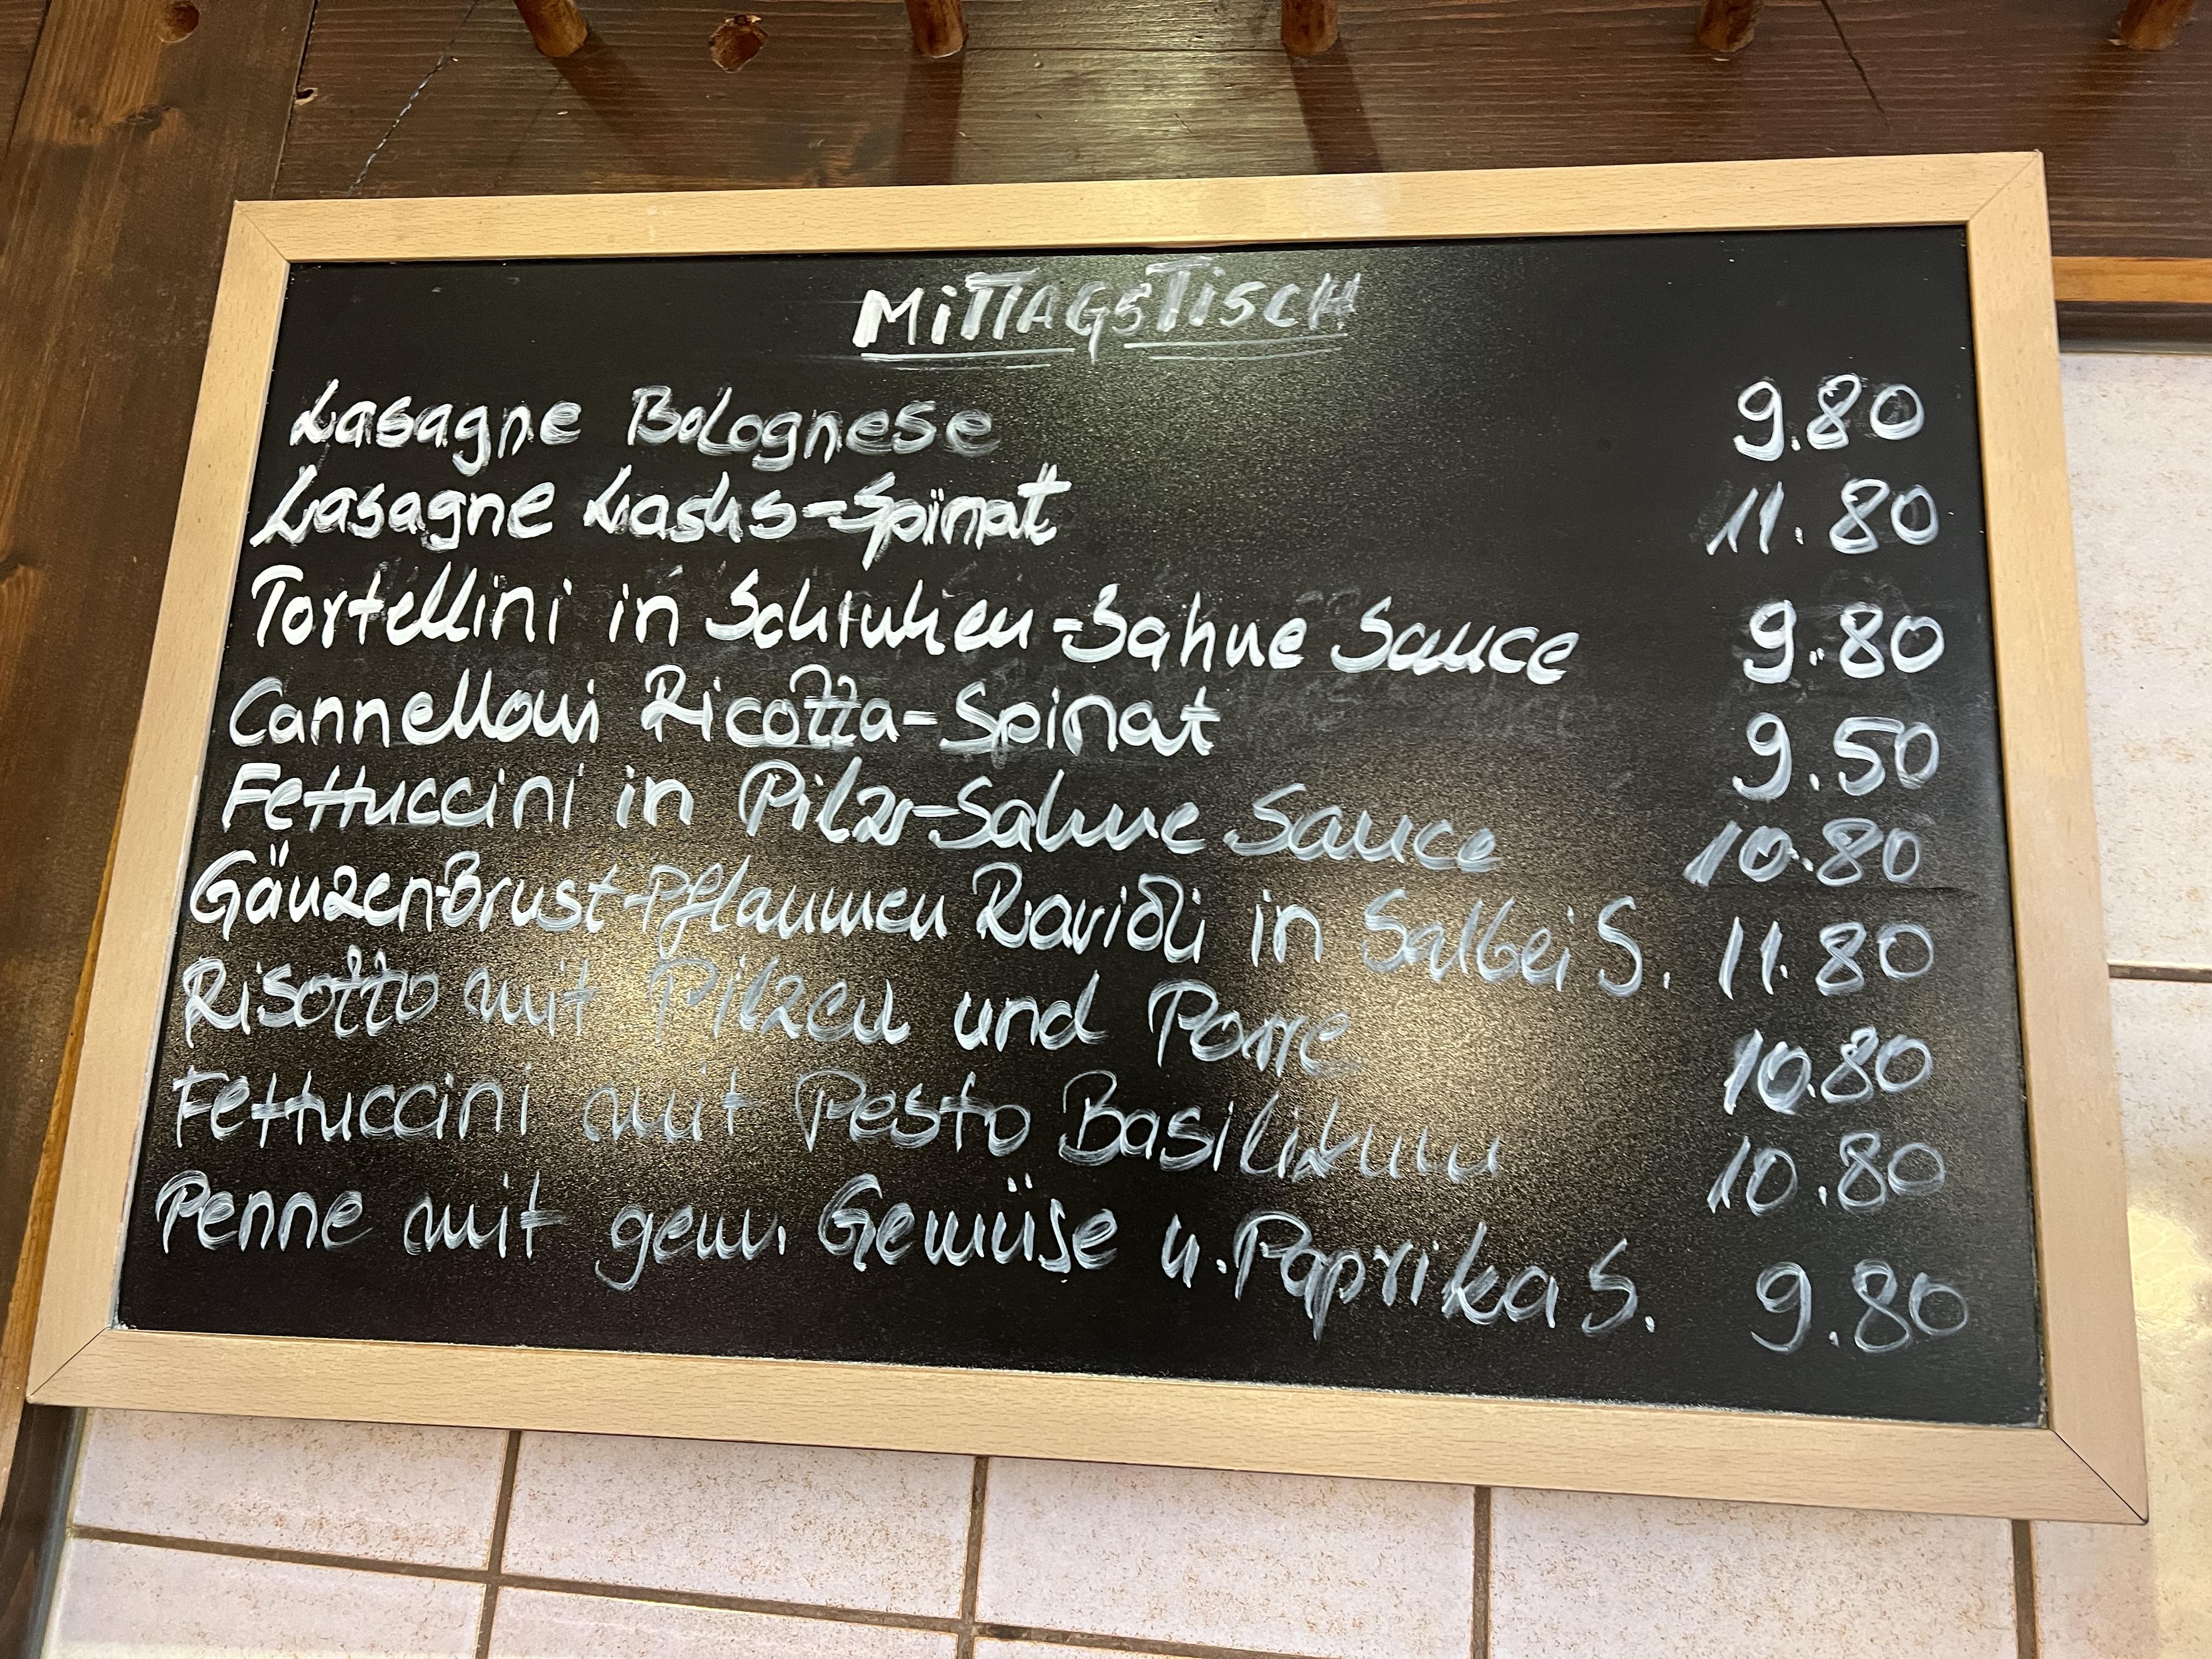 MiTTAGSTiSCH
Lasagne Bolognese 9.80
Lasagne Lachs-Spinat 11.80
Tortellini in Schinken-Sahne Sauce 9.80
Cannelloni Ricotta-Spinat 9.50
Fettuccini in Pilz-Sahne Sauce 10.80
GänzenBrust-Pflaumen Ravioli in Salbei S. 11.80
Risotto mit Pilzen und Porre 10.80
Fettuccini mit Pesto Basilikum 10.80
Penne mit gem. Gemüse u. Paprika S. 9.80